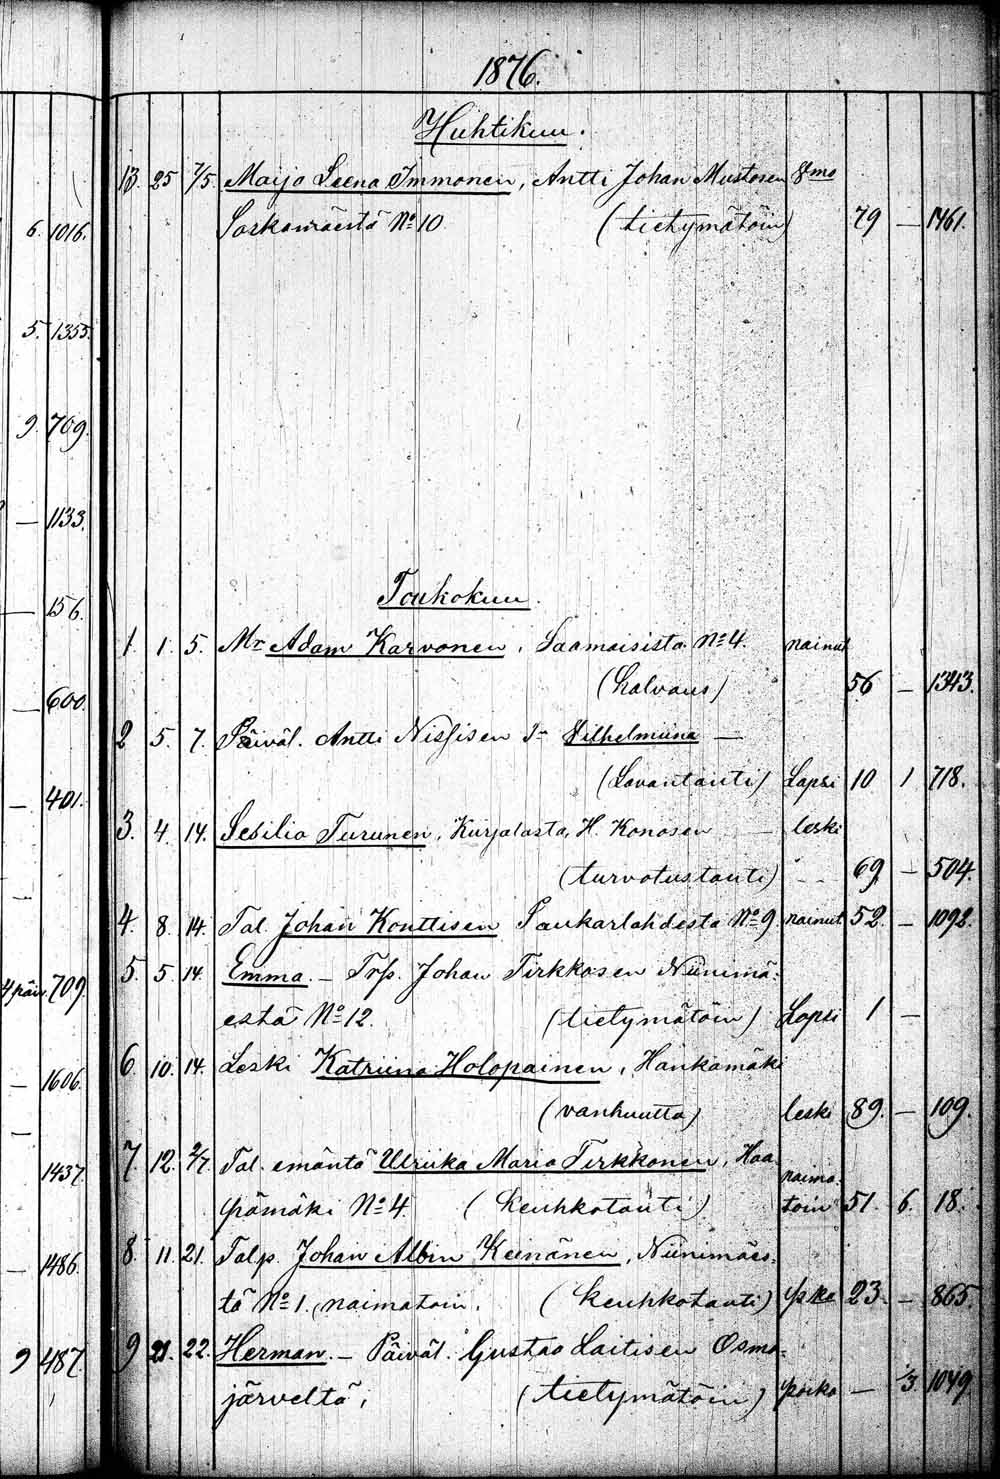 1876.
Huhtikuu.
13. 25 7/5. Maija Leena Immonen, Antti Johan Mustosen
(tietymätöin) 79 — 1461.
N:o 10
6. 1016.
5. 1355.
9. 709.
— 1133.
— 156.
— 600.
— 401.
4 päiv. 709.
— 1606.
— 1437.
— 1486.
9 487.
Toukokuu.
1. 1. 5. Mr Adam Karvonen, Saamaisista N:o 4. nainut
(halvaus) 56 — 1343.
2 5. 7. Päiväl. Antti Nissisen Vilhelmiina —
(Lavantauti) Lapsi 10 1 718.
3. 4. 14. Sesilia Turunen, Kurjalasta, H. Konosen — leski
(turvotustauti) 69 — 504.
4. 8. 14. Tal. Johan Konttisen Paukarlahdesta N:o 9. nainut 52. — 1092.
5. 5. 14. Emma. — Torp. Johan Tirkkosen Niinimä-
estä N:o 12. (tietymätöin) Lapsi 1 —
6 10. 14. Leski Katriina Holopainen, Hankamäki
(vanhuutta) leski 89. — 109.
7. 12. 2/7. Tal. emäntä Ulriika Maria Tirkkonen, Haa-
pämäki N:o 4. (Keuhkotauti) naima-
toin 51. 6. 18.
8. 11. 21. Talp. Johan Albin Keinänen, Niinimäes-
tä N:o 1. naimatoin. (Keuhkotauti) 23. — 865.
9 21. 22. Herman. — Päiväl. Gustav Laitisen Osma-
järveltä, (tietymätöin) poika — 1/3. 1049.